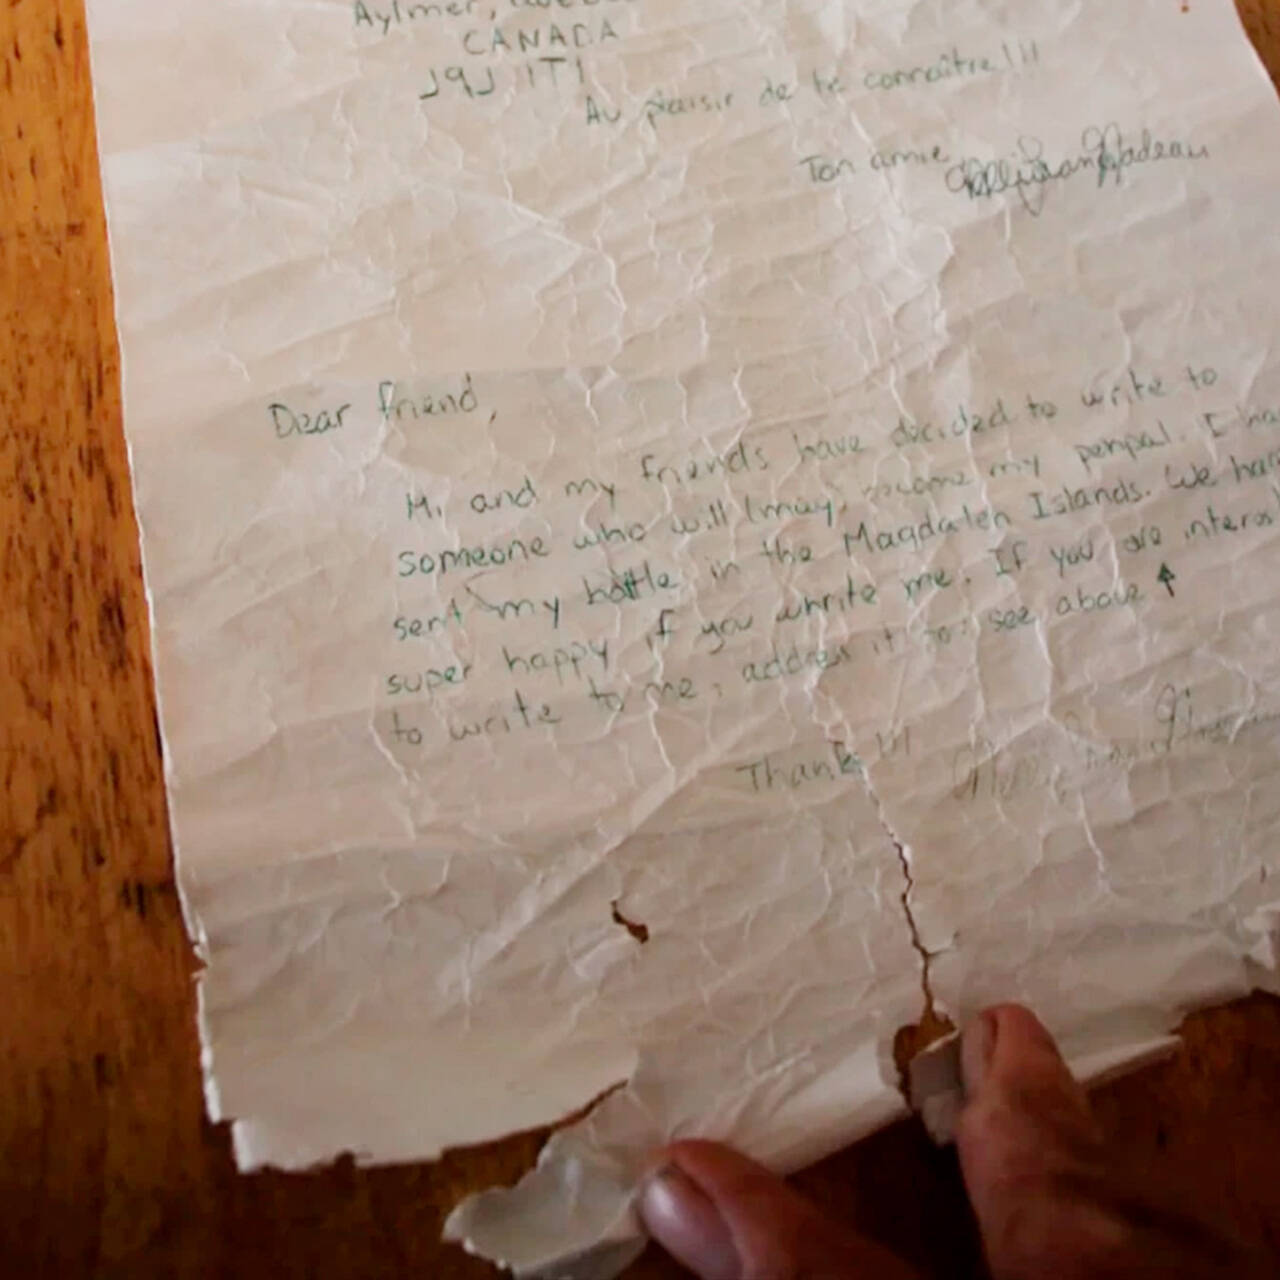 Aylmer,
CANADA
J9J 1T1
Au plaisir de te connaître!!!
Ton amie
Dear friend,
Hi and my friends have decided to write to
someone who will (may) become my penpal. I
sent my bottle in the Magdalen Islands. We
super happy if you whrite me. If you are
to write to me, address it to: see above ↑
Thank !!!